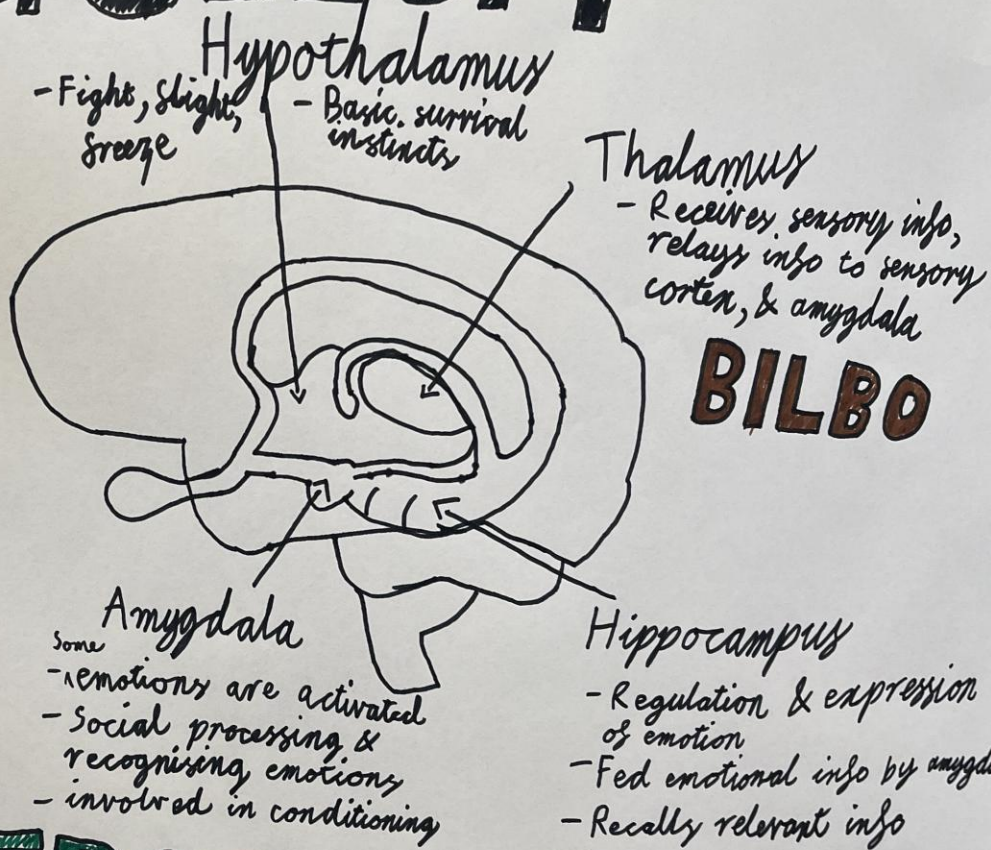 Hypothalamus
- Fight, flight,
freeze
- Basic survival
instincts
Thalamus
- Receives sensory info,
relays info to sensory
cortex, & amygdala
BILBO
Amygdala
some
- ^emotions are activated
- Social processing &
recognising emotions
- involved in conditioning
Hippocampus
- Regulation & expression
of emotion
- Fed emotional info by amygd
- Recalls relevant info